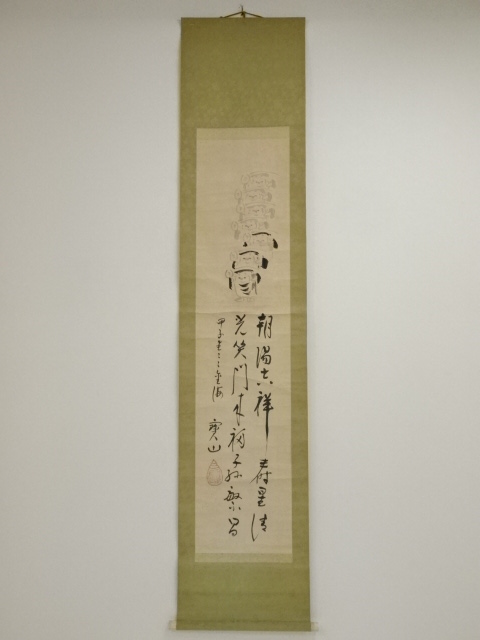 朝陽吉祥寿星清
光笑門来福子孫繁昌
甲子
寳山